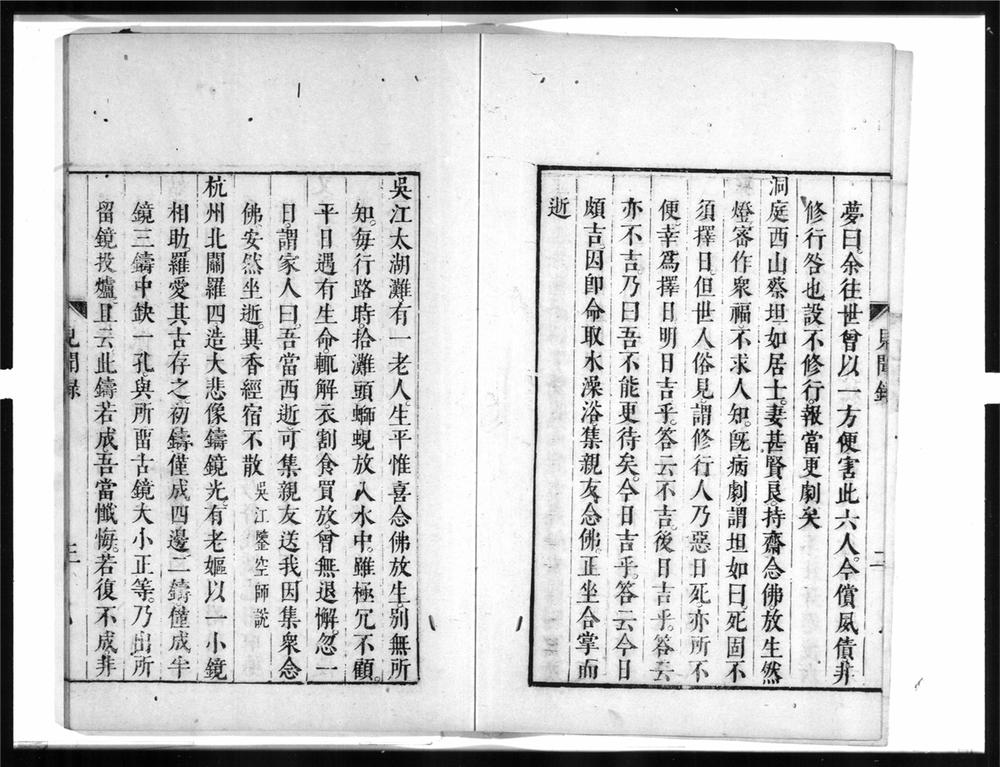 夢曰余往世曾以一方便害此六人今償夙債非
修行咎也設不修行報當更劇矣
洞庭西山蔡坦如居士妻甚賢良持齋念佛放生然
燈審作衆福不求人知旣病劇謂坦如曰死固不
須擇日但世人俗見謂修行人乃惡日死亦所不
便幸爲擇日明日吉乎答云不吉後日吉乎答云
亦不吉乃曰吾不能更待矣今日吉乎答云今日
頗吉因卽命取水澡浴集親友念佛正坐合掌而
逝
見聞錄
二
吳江太湖灘有一老人生平惟喜念佛放生別無所
知每行路時拾灘頭螄蜆放入水中雖極冗不顧
平日遇有生命輒解衣割食買放曾無退懈忽一
日謂家人曰吾當西逝可集親友送我因集衆念
佛安然坐逝異香經宿不散 吳江鑒空師說
杭州北關羅四造大悲像鑄鏡光有老嫗以一小鏡
相助羅愛其古存之初鑄僅成四邊二鑄僅成半
鏡三鑄中缺一孔與所畱古鏡大小正等乃出所
留鏡投爐且云此鑄若成吾當懺悔若復不成非
見聞錄
三